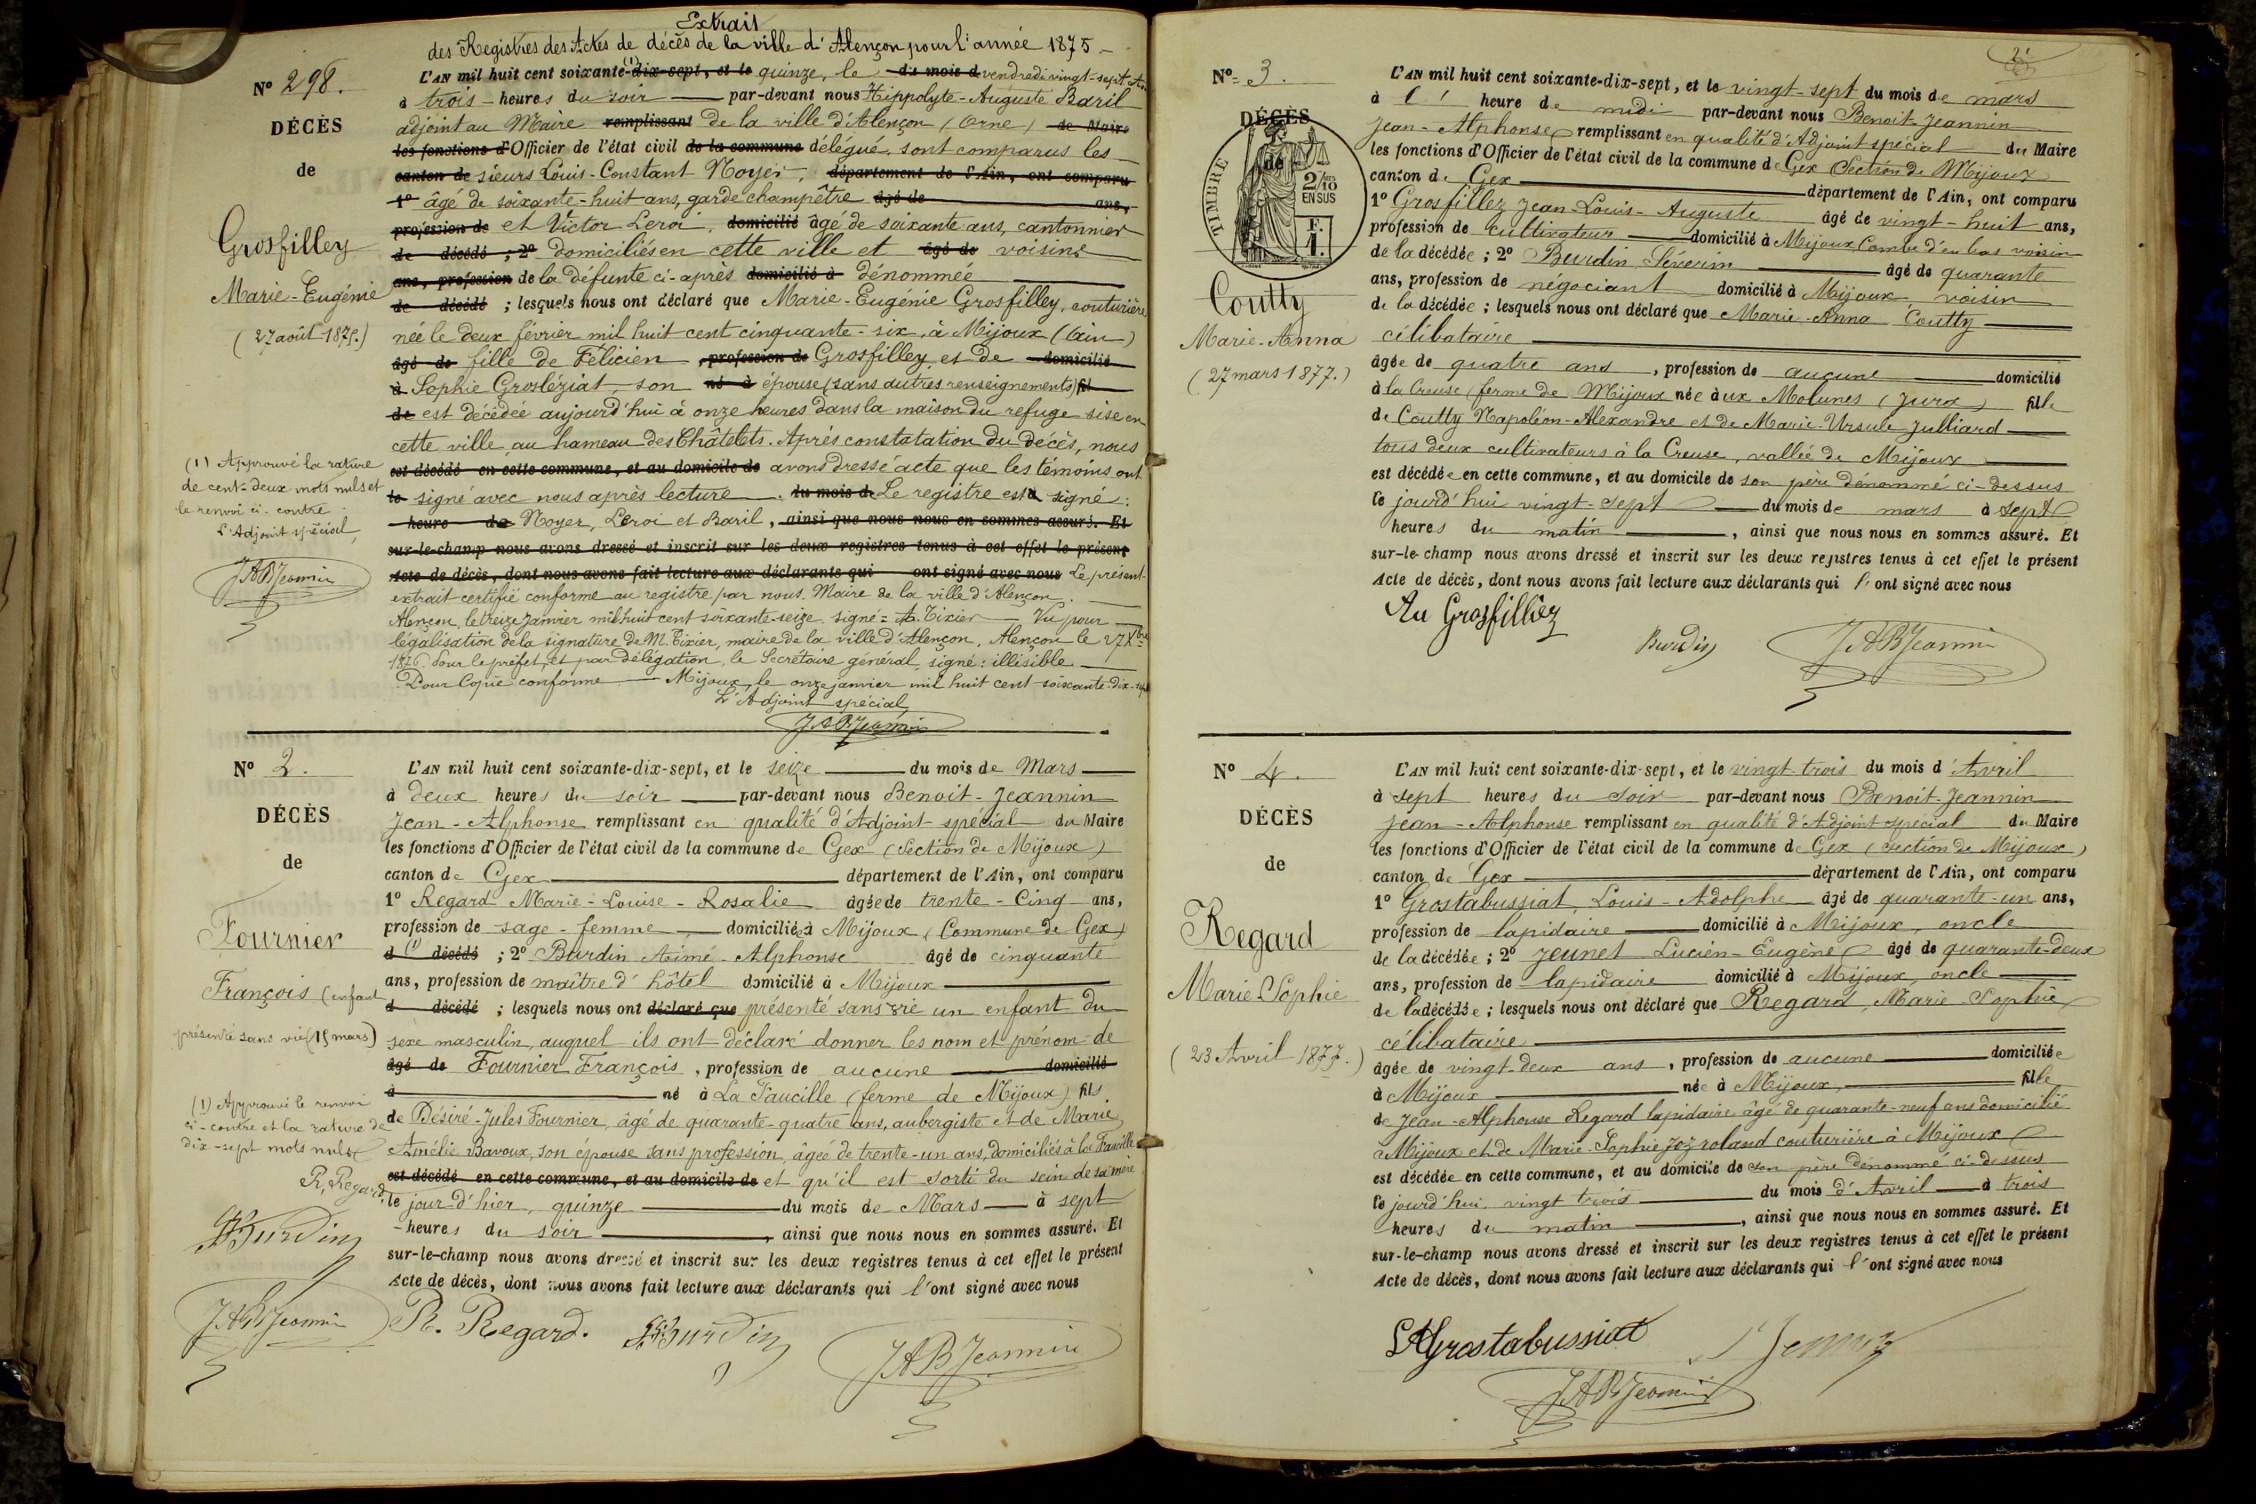 Extrait
des Registres des Actes de décès de la ville d'Alençon pour l'année 1875 -
N° 298.
DÉCÈS
de
Grosfilley
Marie-Eugénie
(27 août 1875.)
(1) Approuvé la rature
de cent-deux mots nuls et
le renvoi ci-contre
L'Adjoint spécial,
JABJeannin
L'AN mil huit cent soixante-(1) dix-sept, et le quinze, le du mois d vendredi vingt-sept
à trois heures du soir par-devant nous Hippolyte-Auguste Baril
adjoint au Maire remplissant de la ville d'Alençon (Orne) de Maire
les fonctions d'Officier de l'état civil de la commune délégué, sont comparus les
canton de sieurs Louis-Constant Noyer, département de l'Ain, ont comparu
1° âgé de soixante-huit ans, garde champêtre âgé de ans,
profession de et Victor Leroi, domicilié âgé de soixante ans, cantonnier
de décédé ; 2° domiciliés en cette ville et âgé de voisins
ans, profession de la défunte ci-après domicilié à dénommée
de décédé ; lesquels nous ont déclaré que Marie-Eugénie Grosfilley, couturière
née le deux février mil huit cent cinquante-six, à Mijoux (Ain)
âgé de fille de Félicien , profession de Grosfilley et de domicilié
à Sophie Grosléziat, son né à épouse (sans autres renseignements) fil
de est décédée aujourd'hui à onze heures dans la maison du refuge sise en
cette ville, au hameau des Châtelets. Après constatation du décès, nous
est décédé en cette commune, et au domicile de avons dressé acte que les témoins ont
le signé avec nous après lecture . du mois de Le registre est signé:
heure de Noyer, Leroi et Baril, ainsi que nous nous en sommes assuré. Et
sur-le-champ nous avons dressé et inscrit sur les deux registres tenus à cet effet le présent
Acte de décès, dont nous avons fait lecture aux déclarants qui ont signé avec nous Le présent
extrait certifié conforme au registre par nous, Maire de la ville d'Alençon.
Alençon, le treize janvier mil huit cent soixante-seize signé = A. Tixier - Vu pour
légalisation de la signature de M. Tixier, maire de la ville d'Alençon, Alençon le 27 Xbre
1876. Pour le préfet, et par délégation, le Secrétaire général, signé: illisible
Pour Copie conforme Mijoux, le onze janvier mil huit cent soixante-dix-sept
L'Adjoint spécial
JABJeannin
N° 2.
DÉCÈS
de
Fournier
François (enfant
présenté sans vie) (15 mars)
(1) Approuvé le renvoi
ci-contre et la rature de
dix-sept mots nuls
R. Regard,
Burdin
JABJeannin
L'AN mil huit cent soixante-dix-sept, et le seize du mois de Mars
à deux heures du soir par-devant nous Benoit-Jeannin
Jean-Alphonse remplissant en qualité d'Adjoint spécial du Maire
les fonctions d'Officier de l'état civil de la commune de Gex (Section de Mijoux)
canton de Gex département de l'Ain, ont comparu
1° Regard Marie-Louise-Rosalie âgée de trente-Cinq ans,
profession de sage-femme domiciliée à Mijoux (Commune de Gex)
d (1) décédé ; 2° Burdin Aimé-Alphonse âgé de cinquante
ans, profession de maître d'hôtel domicilié à Mijoux
d décédé ; lesquels nous ont déclaré que présenté sans vie un enfant du
sexe masculin, auquel ils ont déclaré donner les nom et prénom de
âgé de Fournier François , profession de aucune domicilié
à né à La Faucille (ferme de Mijoux) fils
de Désiré-Jules Fournier, âgé de quarante-quatre ans, aubergiste et de Marie
Amélie Bavoux, son épouse sans profession, âgée de trente-un ans, domiciliés à la Faucille
est décédé en cette commune, et au domicile de et qu'il est sorti du sein de sa mère
le jour d'hier, quinze du mois de Mars à sept
heures du soir , ainsi que nous nous en sommes assuré. Et
sur-le-champ nous avons dressé et inscrit sur les deux registres tenus à cet effet le présent
Acte de décès, dont nous avons fait lecture aux déclarants qui l'ont signé avec nous
R. Regard. Burdin JABJeannin
2
N° 3.
DÉCÈS
de
TIMBRE
2/10
EN SUS
F.
1.
Coutty
Marie-Anna
(27 mars 1877.)
L'AN mil huit cent soixante-dix-sept, et le vingt-sept du mois de mars
à l' heure de midi par-devant nous Benoit-Jeannin
Jean-Alphonse remplissant en qualité d'Adjoint spécial du Maire
les fonctions d'Officier de l'état civil de la commune de Gex Section de Mijoux
canton de Gex département de l'Ain, ont comparu
1° Grosfillez Jean-Louis-Auguste âgé de vingt-huit ans,
profession de cultivateur domicilié à Mijoux Combe d'en bas voisin
de la décédée ; 2° Burdin Séverin âgé de quarante
ans, profession de négociant domicilié à Mijoux, voisin
de la décédée ; lesquels nous ont déclaré que Marie-Anna Coutty
célibataire
âgée de quatre ans , profession de aucune domicilié
à la Creuse (ferme de Mijoux née aux Molunes (Jura) fille
de Coutty Napoléon-Alexandre et de Marie-Ursule Julliard
tous deux cultivateurs à la Creuse, vallée de Mijoux
est décédée en cette commune, et au domicile de son père dénommé ci-dessus
le jourd'hui vingt-sept du mois de mars à sept
heures du matin , ainsi que nous nous en sommes assuré. Et
sur-le-champ nous avons dressé et inscrit sur les deux registres tenus à cet effet le présent
Acte de décès, dont nous avons fait lecture aux déclarants qui l'ont signé avec nous
Au Grosfilliez
Burdin JABJeannin
N° 4.
DÉCÈS
de
Regard
Marie-Sophie
(23 Avril 1877.)
L'AN mil huit cent soixante-dix-sept, et le vingt-trois du mois d'Avril
à sept heures du soir par-devant nous Benoit-Jeannin
Jean-Alphonse remplissant en qualité d'Adjoint spécial du Maire
les fonctions d'Officier de l'état civil de la commune de Gex (section de Mijoux)
canton de Gex département de l'Ain, ont comparu
1° Grostabussiat, Louis-Adolphe âgé de quarante-un ans,
profession de lapidaire domicilié à Mijoux, oncle
de la décédée ; 2° Jeunet Lucien-Eugène âgé de quarante-deux
ans, profession de lapidaire domicilié à Mijoux, oncle
de la décédée ; lesquels nous ont déclaré que Regard, Marie-Sophie
célibataire
âgée de vingt-deux ans , profession de aucune domiciliée
à Mijoux née à Mijoux, fille
de Jean-Alphonse Regard lapidaire âgé de quarante-neuf ans domicilié
à Mijoux et de Marie-Sophie Jozroland couturière à Mijoux
est décédée en cette commune, et au domicile de son père dénommé ci-dessus
le jourd'hui vingt trois du mois d'Avril à trois
heures du matin , ainsi que nous nous en sommes assuré. Et
sur-le-champ nous avons dressé et inscrit sur les deux registres tenus à cet effet le présent
Acte de décès, dont nous avons fait lecture aux déclarants qui l'ont signé avec nous
LAGrostabussiat
JABJeannin